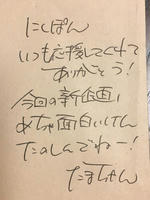 にこぽん
いつも応援してくれて
ありがとう!
今回の新企画、
めちゃ面白いけん
たのしんでねー!
たまちゃん